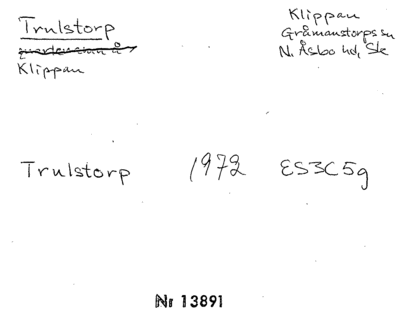 Trulstorp
Klippan
Klippan
Gråmanstorps sn
N. Åsbo hd, Sk
Trulstorp 1972 ES3C5g
Nr 13891